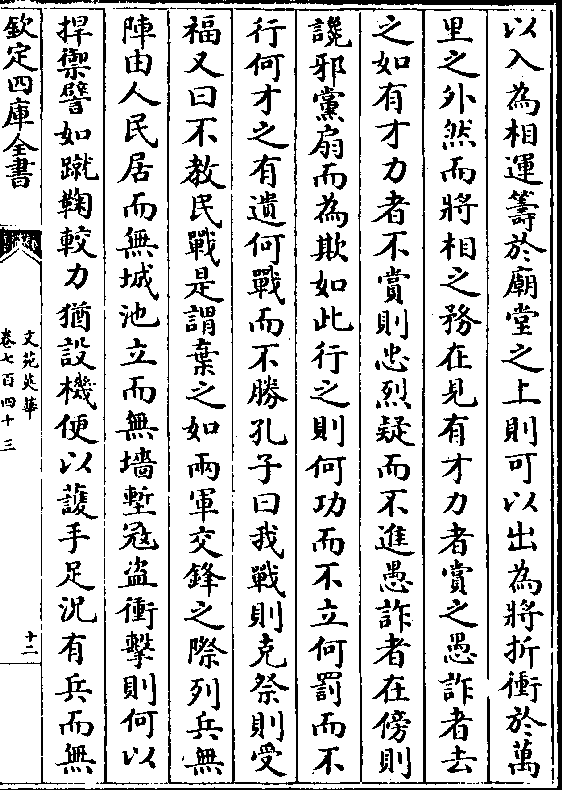 以入為相運籌於廟堂之上則可以出為將折衝於萬
里之外然而將相之務在見有才力者賞之愚詐者去
之如有才力者不賞則忠烈疑而不進愚詐者在傍則
讒邪黨扇而為欺如此行之則何功而不立何罰而不
行何才之有遺何戰而不勝孔子曰我戰則克祭則受
福又曰不教民戰是謂棄之如兩軍交鋒之際列兵無
陣由人民居而無城池立而無墻塹冦盗衝擊則何以
捍禦譬如蹴鞠較力猶設機便以䕶手足况有兵而無
欽定四庫全書
文苑英華
卷七百四十三
十二